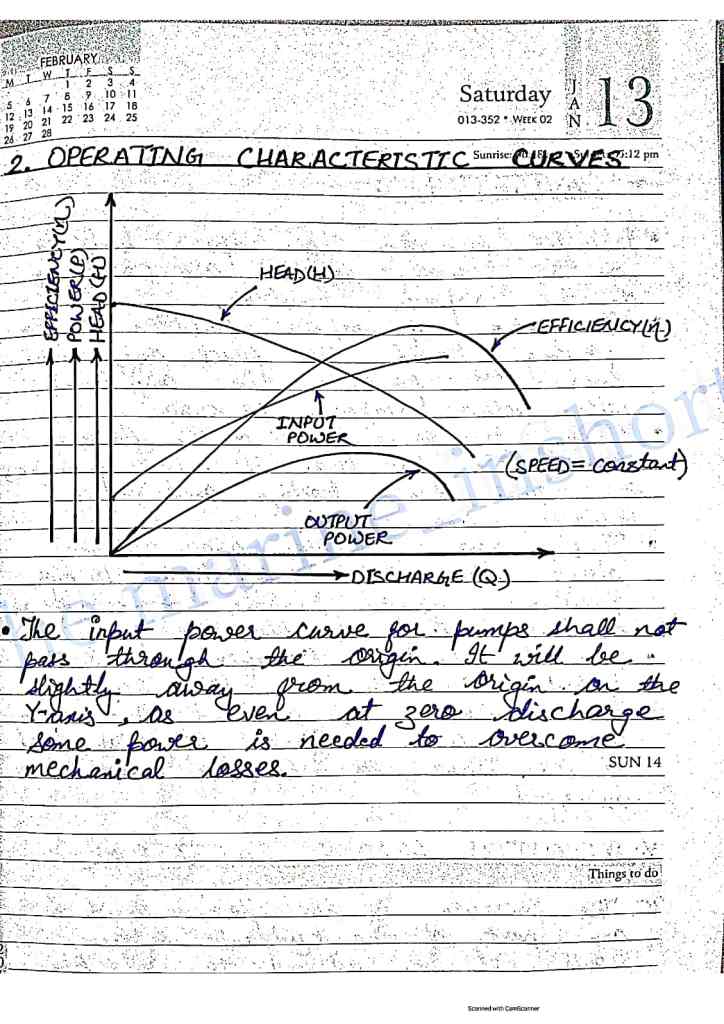 FEBRUARY
M T W T F S S
1 2 3 4
5 6 7 8 9 10 11
12 13 14 15 16 17 18
19 20 21 22 23 24 25
26 27 28
Saturday
013-352 * WEEK 02
JAN
13
Sunrise:
5:12 pm
2. OPERATING CHARACTERISTIC CURVES
EFFICIENCY(η)
POWER(P)
HEAD(H)
HEAD(H)
EFFICIENCY(η)
INPUT
POWER
(SPEED = constant)
OUTPUT
POWER
DISCHARGE (Q)
the marine_inshort
• The input power curve for pumps shall not
pass through the origin. It will be
slightly away from the origin on the
Y-axis, as even at zero discharge
some power is needed to overcome
mechanical losses.
SUN 14
Things to do
Scanned with CamScanner